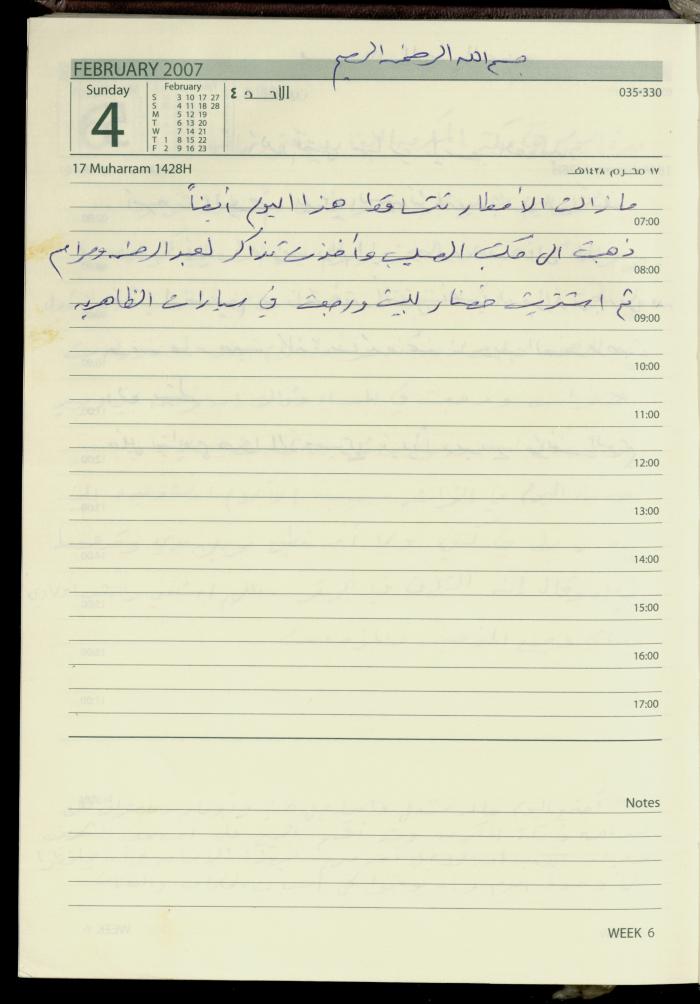 بسم الله الرحمن الرحيم
FEBRUARY 2007
Sunday
4
February
S 3 10 17 27
S 4 11 18 28
M 5 12 19
T 6 13 20
W 7 14 21
T 1 8 15 22
F 2 9 16 23
الأحد ٤
035-330
17 Muharram 1428H
١٧ محرم ١٤٢٨هـ
ما زالت الأمطار تتساقط هذا اليوم أيضاً
07:00
ذهبت الى مكتب الصليب وأخذت تذاكر لعبد الرحمن ومرام
08:00
ثم اشتريت خضار للبيت ورجعت في سيارات الظاهرية
09:00
10:00
11:00
12:00
13:00
14:00
15:00
16:00
17:00
Notes
WEEK 6